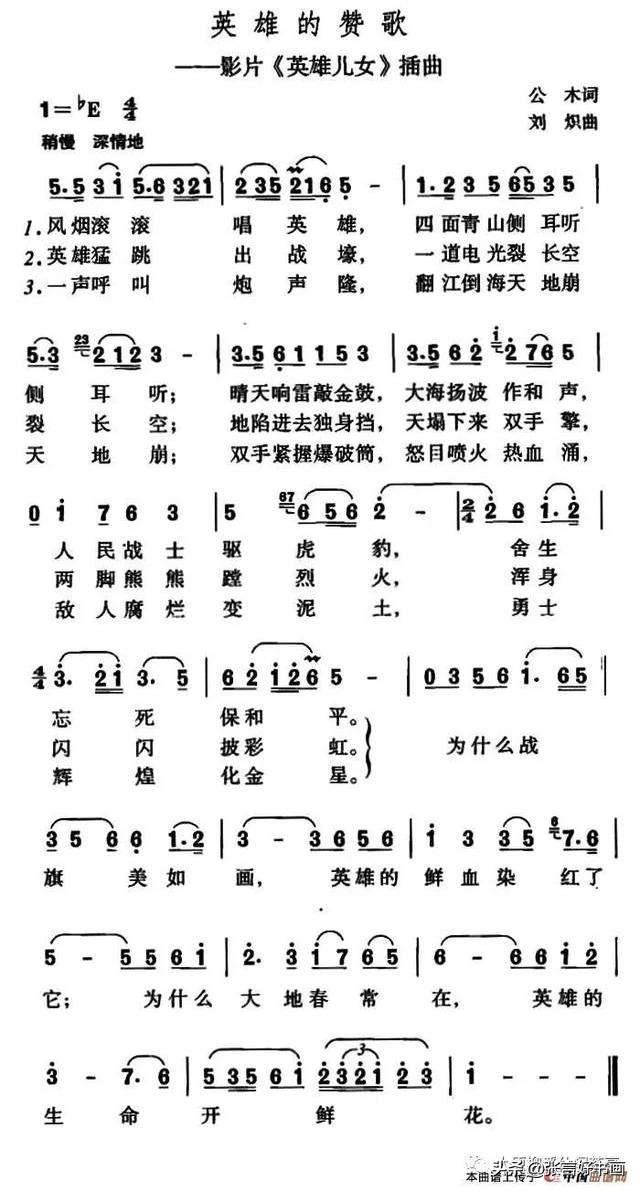 英雄的赞歌
——影片《英雄儿女》插曲
1=♭E 4/4
公木词
刘炽曲
稍慢 深情地
5·5 3 i 5·6 3 2 1 | 2 3 5 2 1 6 5 - | 1·2 3 5 6 5 3 5
1.风烟滚滚唱英雄，四面青山侧耳听
2.英雄猛跳出战壕，一道电光裂长空
3.一声呼叫炮声隆，翻江倒海天地崩
5·3 23 2 1 2 3 - | 3·5 6 1 1 5 3 | 3·5 6 2 i 2 7 6 5 |
侧耳听；晴天响雷敲金鼓，大海扬波作和声，
裂长空；地陷进去独身挡，天塌下来双手擎，
天地崩；双手紧握爆破筒，怒目喷火热血涌，
0 i 7 6 3 | 5 67 6 5 6 2 - | 2/4 2 6 i·2 |
人民战士驱虎豹，舍生
两脚熊熊蹚烈火，浑身
敌人腐烂变泥土，勇士
4/4 3· 2 i 3· 5 | 6 2 i 2 6 5 - | 0 3 5 6 i· 6 5 |
忘死保和平。
闪闪披彩虹。 为什么战
辉煌化金星。
3 5 6 6 1·2 | 3 - 3 6 5 6 | i 3 3 5 6 7·6 |
旗美如画，英雄的鲜血染红了
5 - 5 5 6 i | 2· 3 i 7 6 5 | 6 - 6 5 6 i |
它；为什么大地春常在，英雄的
3 - 7· 6 | 5 3 5 6 i 3 2 3 2 i 2 3 | i - - - ‖
生命开鲜花。
头条@张誉好书画
本曲谱上传于 中国曲谱网